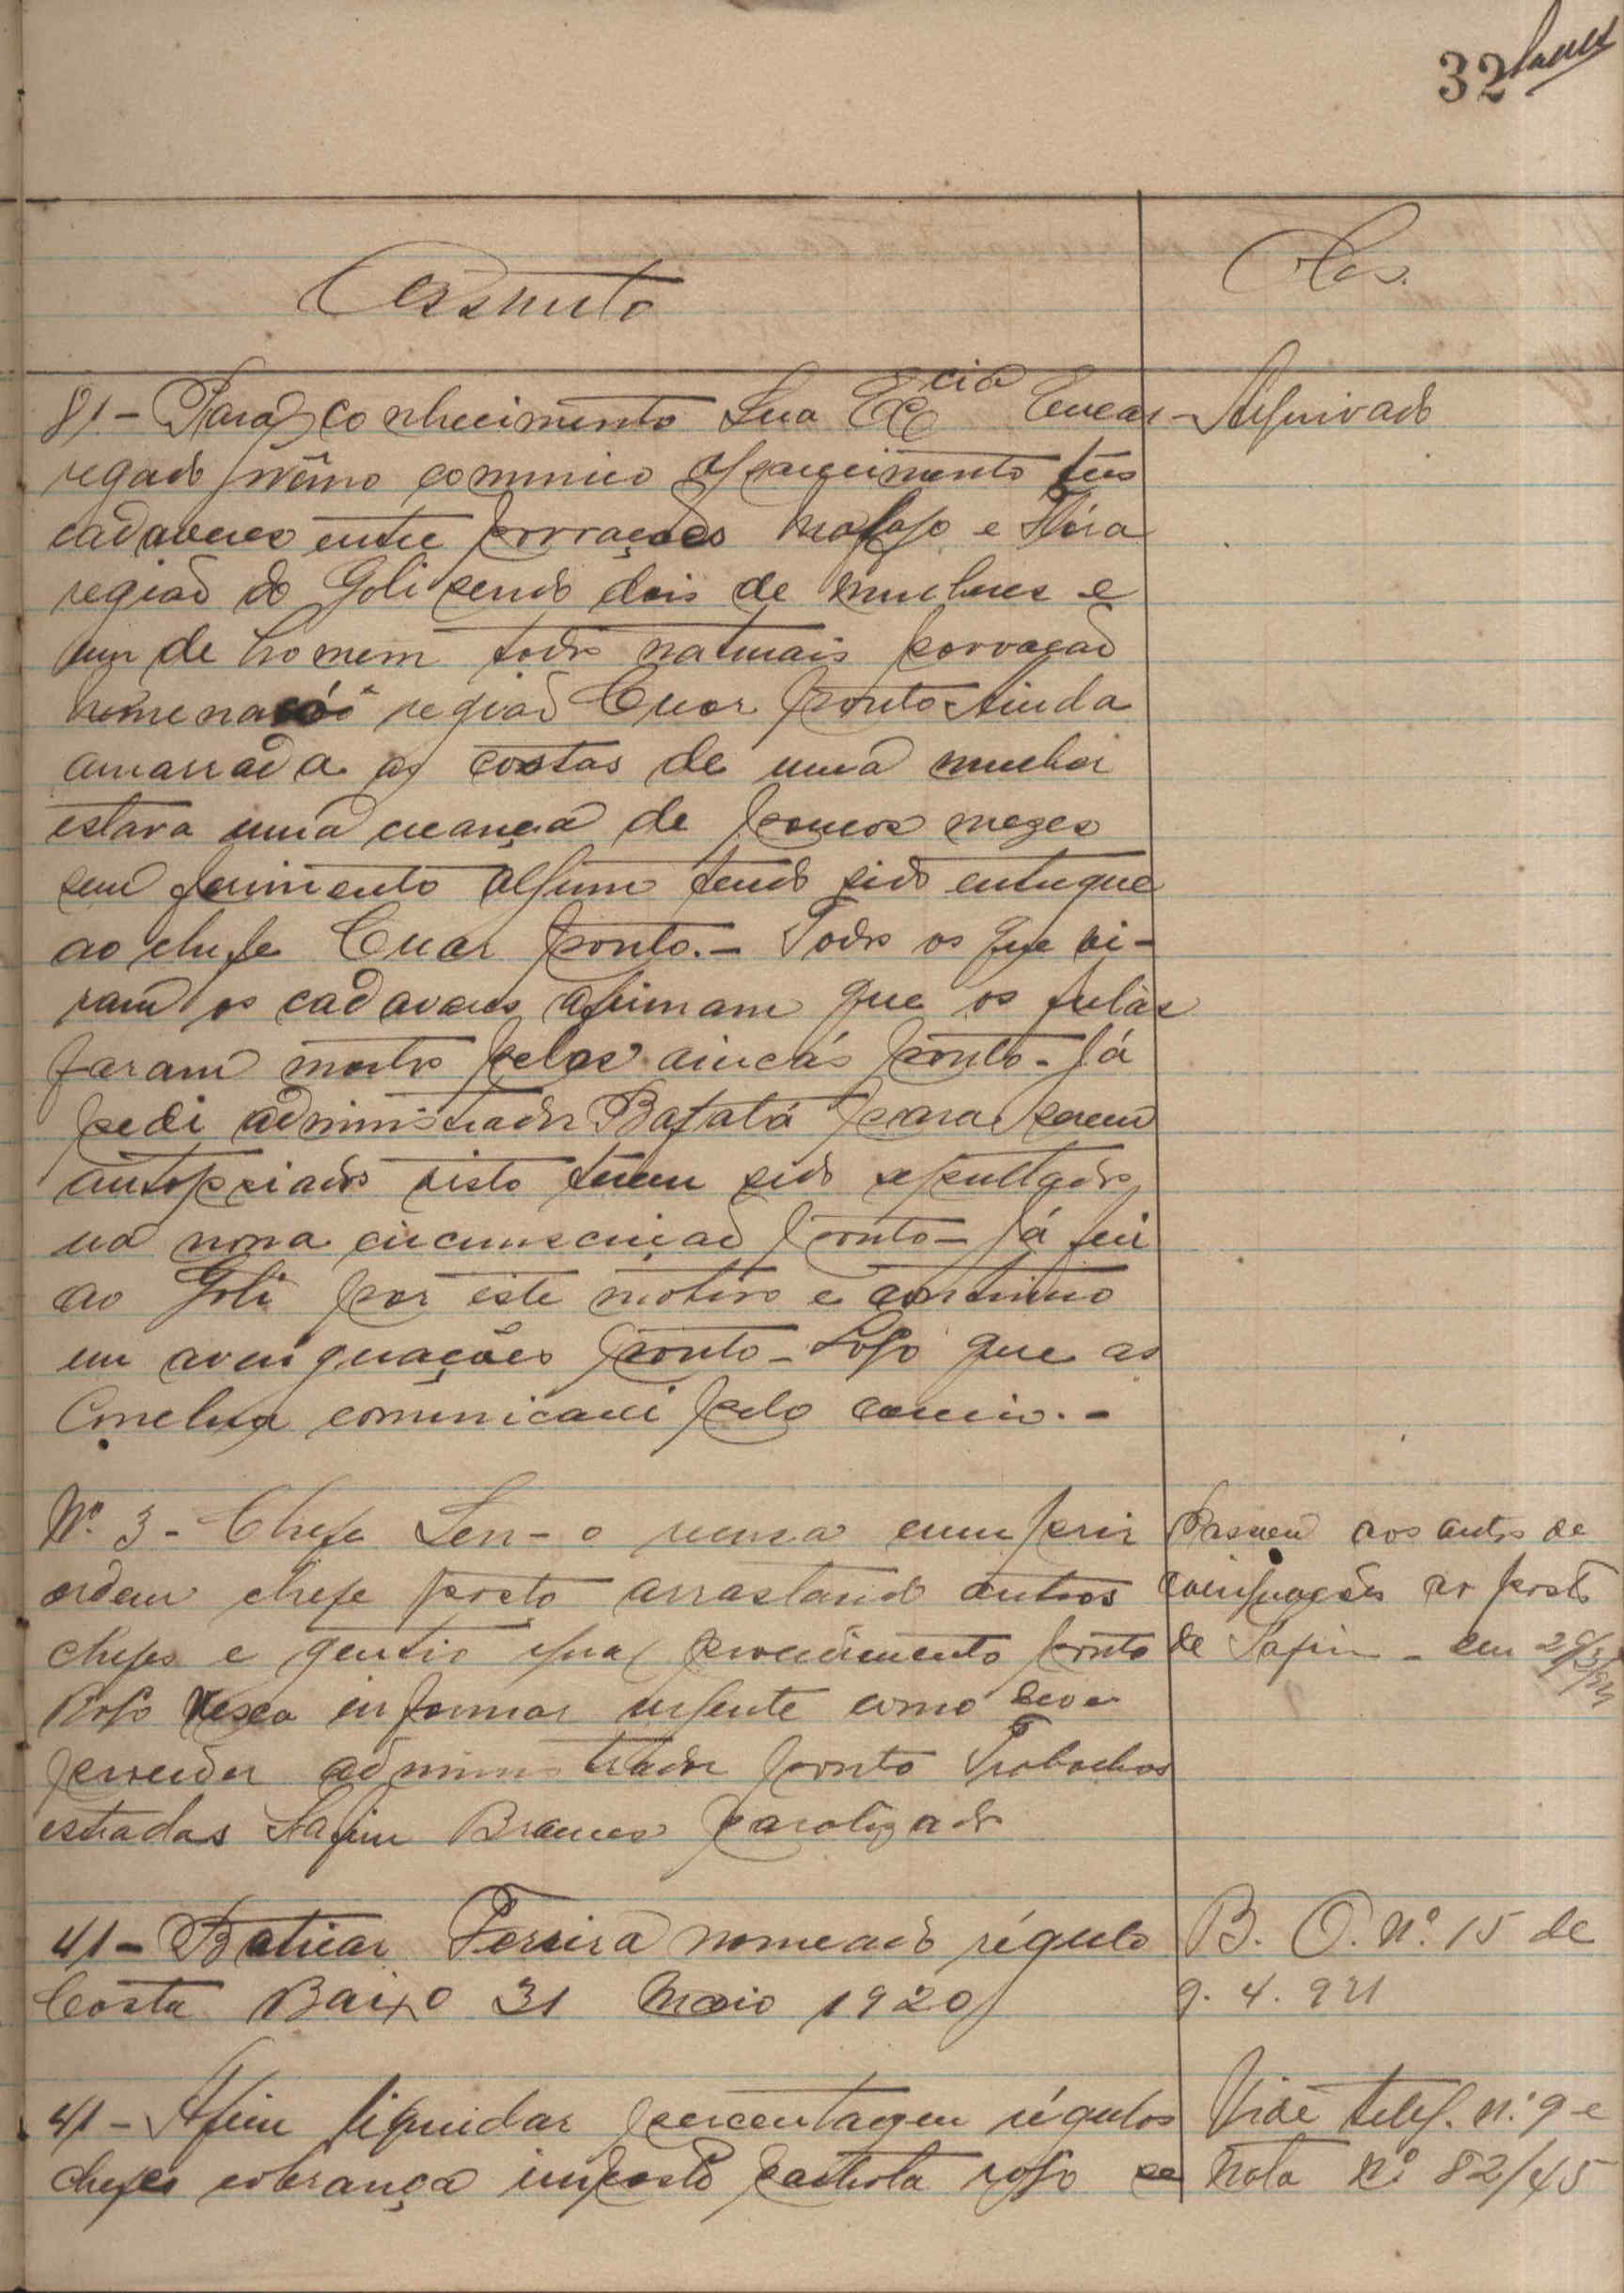 32
Assunto
Obs.
81 - Para conhecimento Sua Excia Encar-
regado Govêrno comunico aparecimento tres
cadaveres entre povoações Mafaso e Flóra
região do Goli sendo dois de mulheres e
um de homem todos naturais povoação
região Cuor ponto Ainda
amarrada as costas de uma mulher
estava uma creança de poucos mezes
sem ferimento algum tendo sido entregue
ao chefe Cuor ponto. - Todos os que vi-
ram os cadaveres afirmam que os fulas
foram mortos pelos ponto - Já
pedi administrador Bafatá para serem
autopsiados visto terem sido sepultados
na nova circunscrição ponto - Já fui
ao Goli por este motivo e continuo
em averiguações ponto - Logo que as
conclua comunicarei pelo correio. -
Arquivado
Nº. 3 - Chefe Sen-o recusa cumprir
ordem chefe posto arrastando outros
chefes e gentio igual procedimento ponto
Rogo Vexa informar urgente como deve
proceder administrador ponto Trabalhos
estradas Safim Brames paralizados
Passou aos autos de
averiguações ao posto
de Safim - em
41 - Baticar Ferreira nomeado régulo
Costa Baixo 31 Maio 1920
B. O. nº. 15 de
9. 4. 921
41 - Afim liquidar percentagem régulos
chefes cobrança imposto palhota rogo se
Vidé teleg. nº. 9 e
Nota nº 82/45